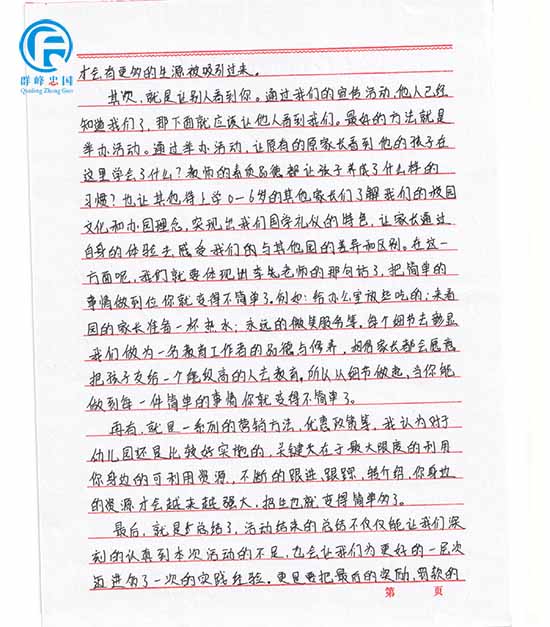 群峰忠国
Qunfeng Zhong Guo
才会有更多的生源被吸引过来。
其次,就是让别人看到你。通过我们的宣传活动,他人已经
知道我们了,那下面就应该让他人看到我们。最好的方法就是
举办活动。通过举办活动,让原有的原家长看到他的孩子在
这里学会了什么?教师的素质品德都让孩子养成了什么样的
习惯?也让其他待上学0-6岁的其他家长们了解我们的校园
文化和办园理念,突现出我们国学礼仪的特色,让家长通过
自身的体验去感受我们的与其他园的差异和区别。在这一
方面呢,我们就要体现出李先老师的那句话了,把简单的
事情做到位你就变得不简单了。例如:给办公室放些吃的;来看
园的家长准备一杯热水;永远的微笑服务等。每个细节去彰显
我们做为一名教育工作者的品德与修养,
家长都会愿意
把孩子交给一个能级高的人去教育。所以从细节做起,当你能
做到每一件简单的事情你就变得不简单了。
再有,就是一系列的营销方法,优惠政策等,我认为对于
幼儿园还是比较好实施的,关键是在于最大限度的利用
你身边的可利用资源,不断的跟进、跟踪,转介绍,你身边
的资源才会越来越强大,招生也就变得简单的了。
最后,就是总结了,活动结束的总结不仅仅能让我们深
刻的认真到本次活动的不足,也会让我们为更好的一层次
迈进多了一次的实践经验。更是要把最后的奖励,罚款的
第 页